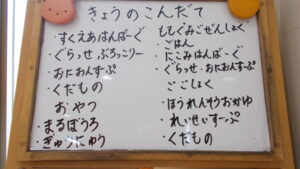 きょうのこんだて
すくえあはんばーぐ
・ぐらっせ ぶろっこりー
・おにおんすーぷ
・くだもの
おやつ
・まるぼうろ
・ぎゅうにゅう
ももぐみごぜんしょく
・ごはん
・にこみはんばーぐ
・ぐらっせ・おにおんすーぷ
ごごしょく
・ほうれんそうおかゆ
・れいせいすーぷ
・くだもの